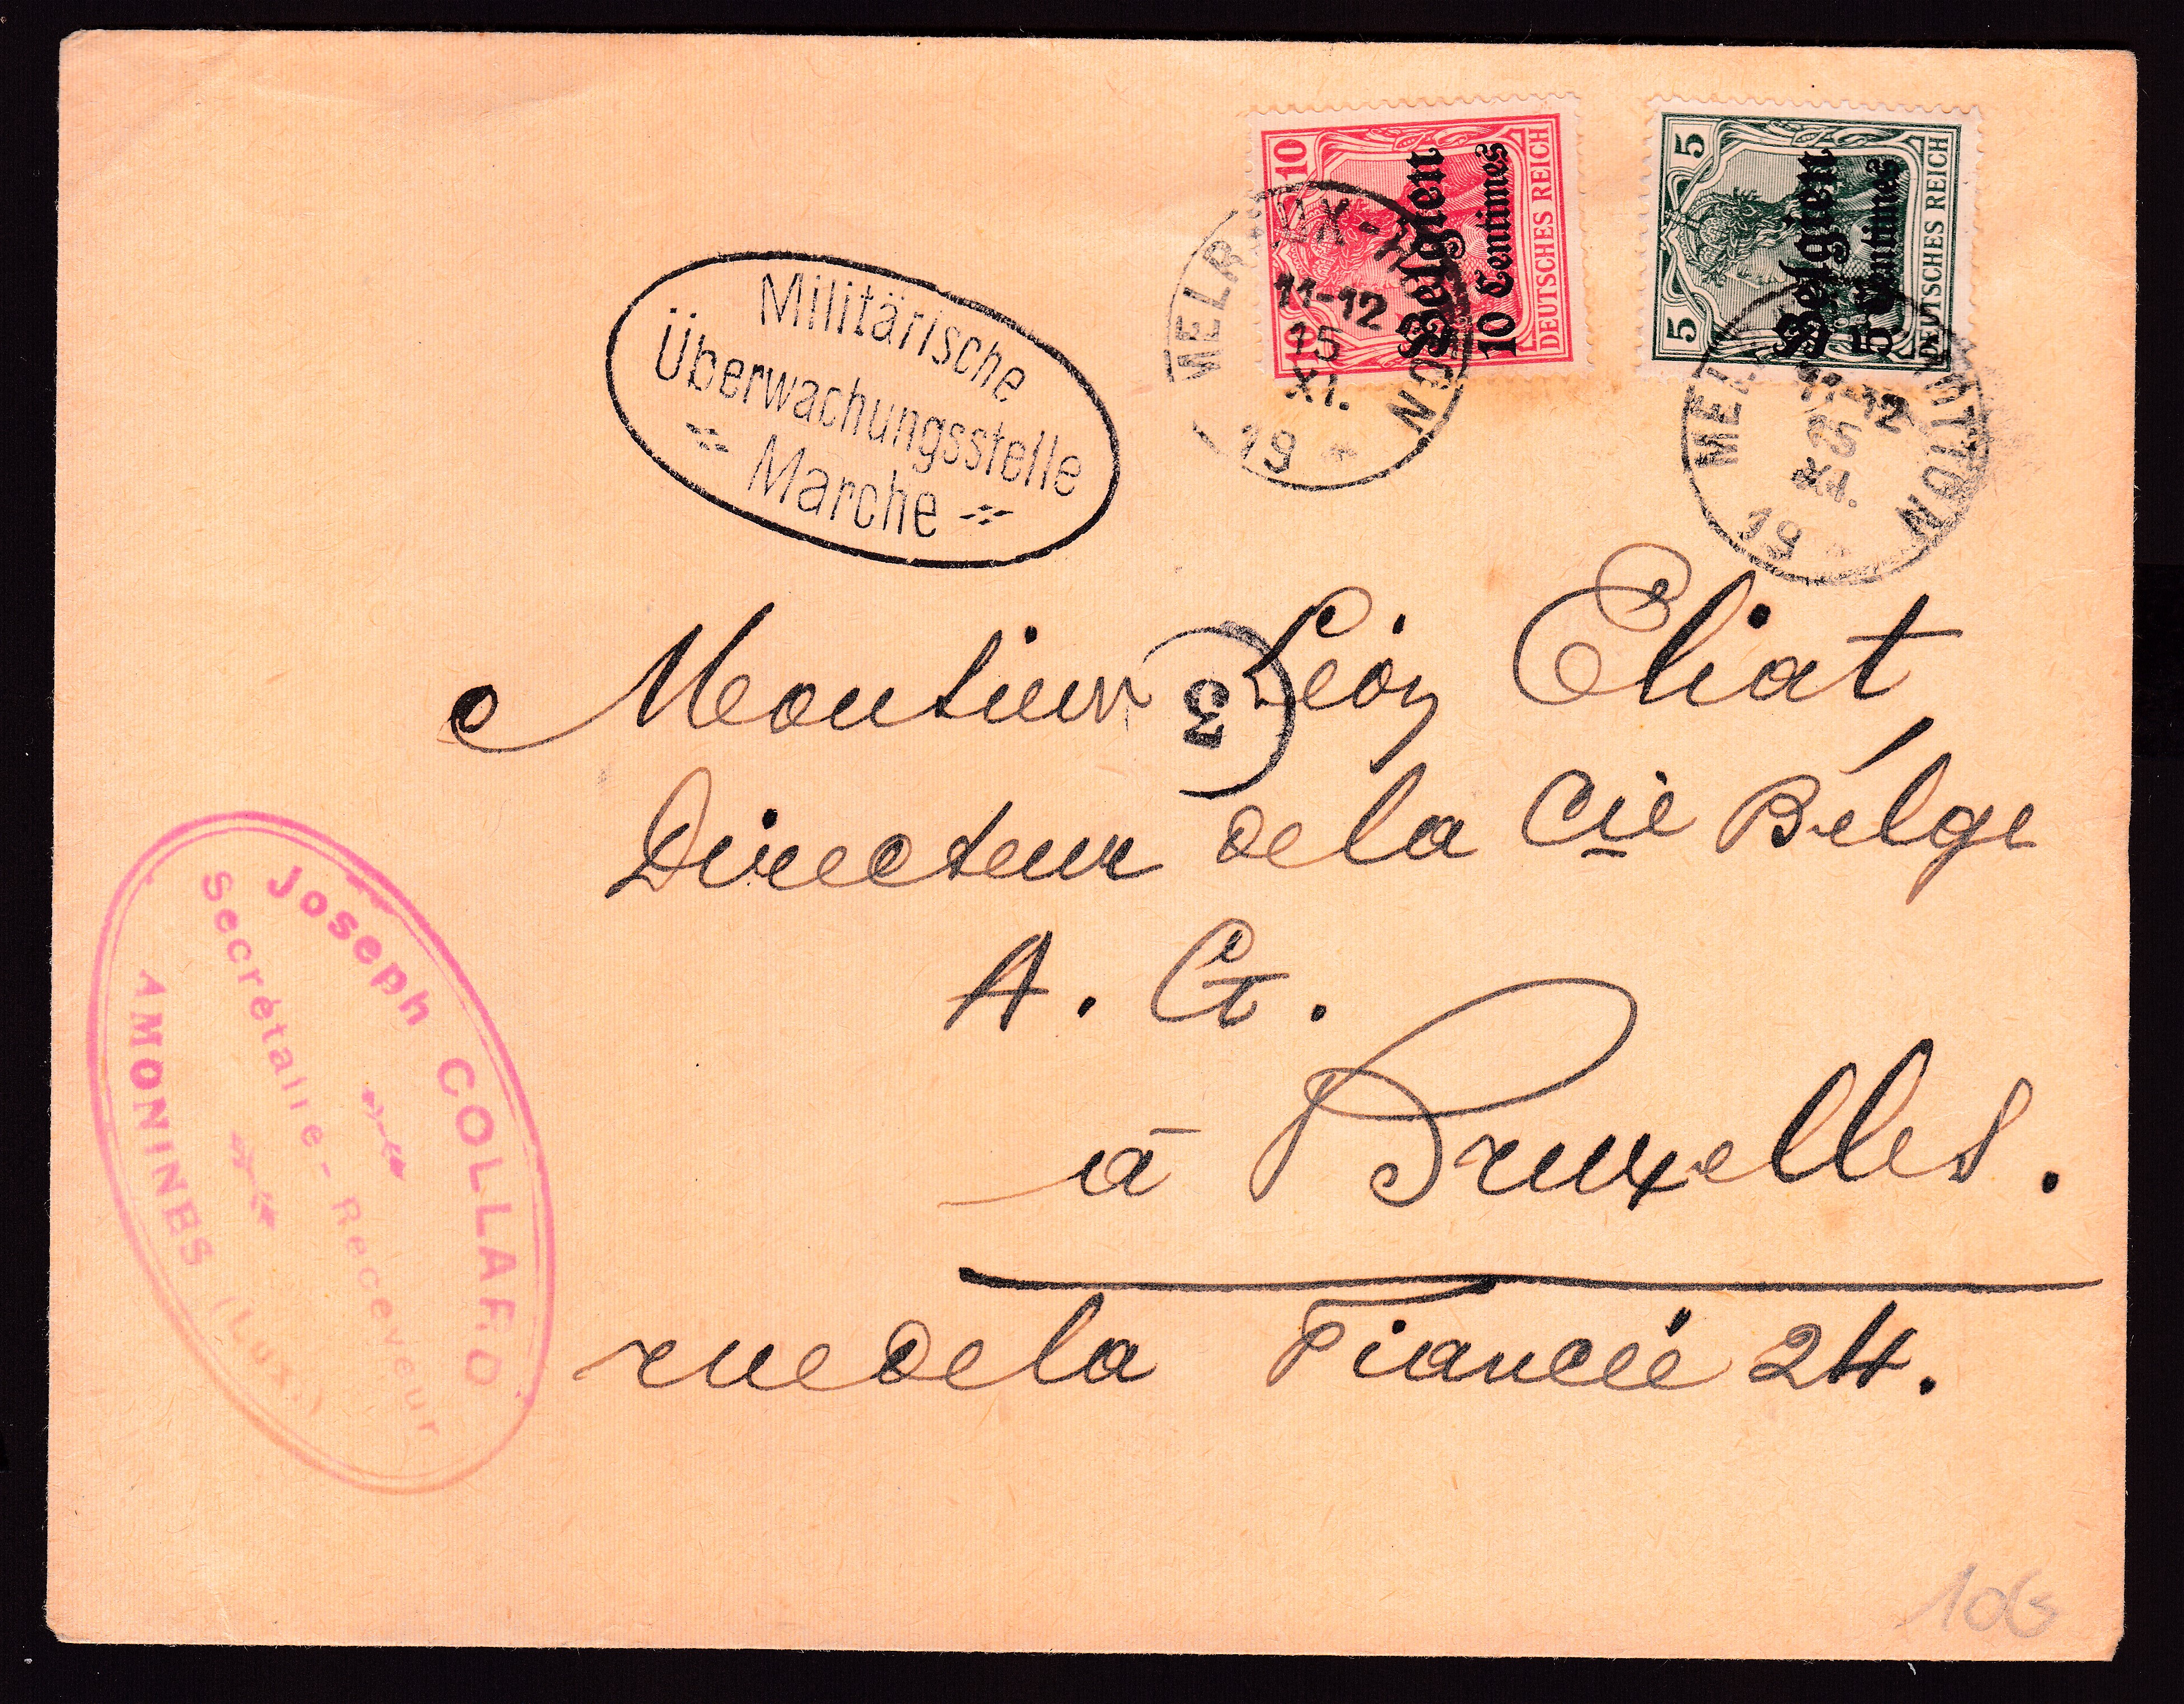 10
10
Belgien
10 Centimes
DEUTSCHES REICH
5
5
Belgien
5 Centimes
DEUTSCHES REICH
11-12
15
XI.
19
NOLLON
11-12
15
XI.
19
Militärische
Überwachungsstelle
Marche
3
Monsieur Léon Eliat,
Directeur de la Cie Belge
A. G.
à Bruxelles.
rue de la Fiancée 24.
Joseph COLLARD
Secrétaire - Receveur
AMONINES (Lux.)
106